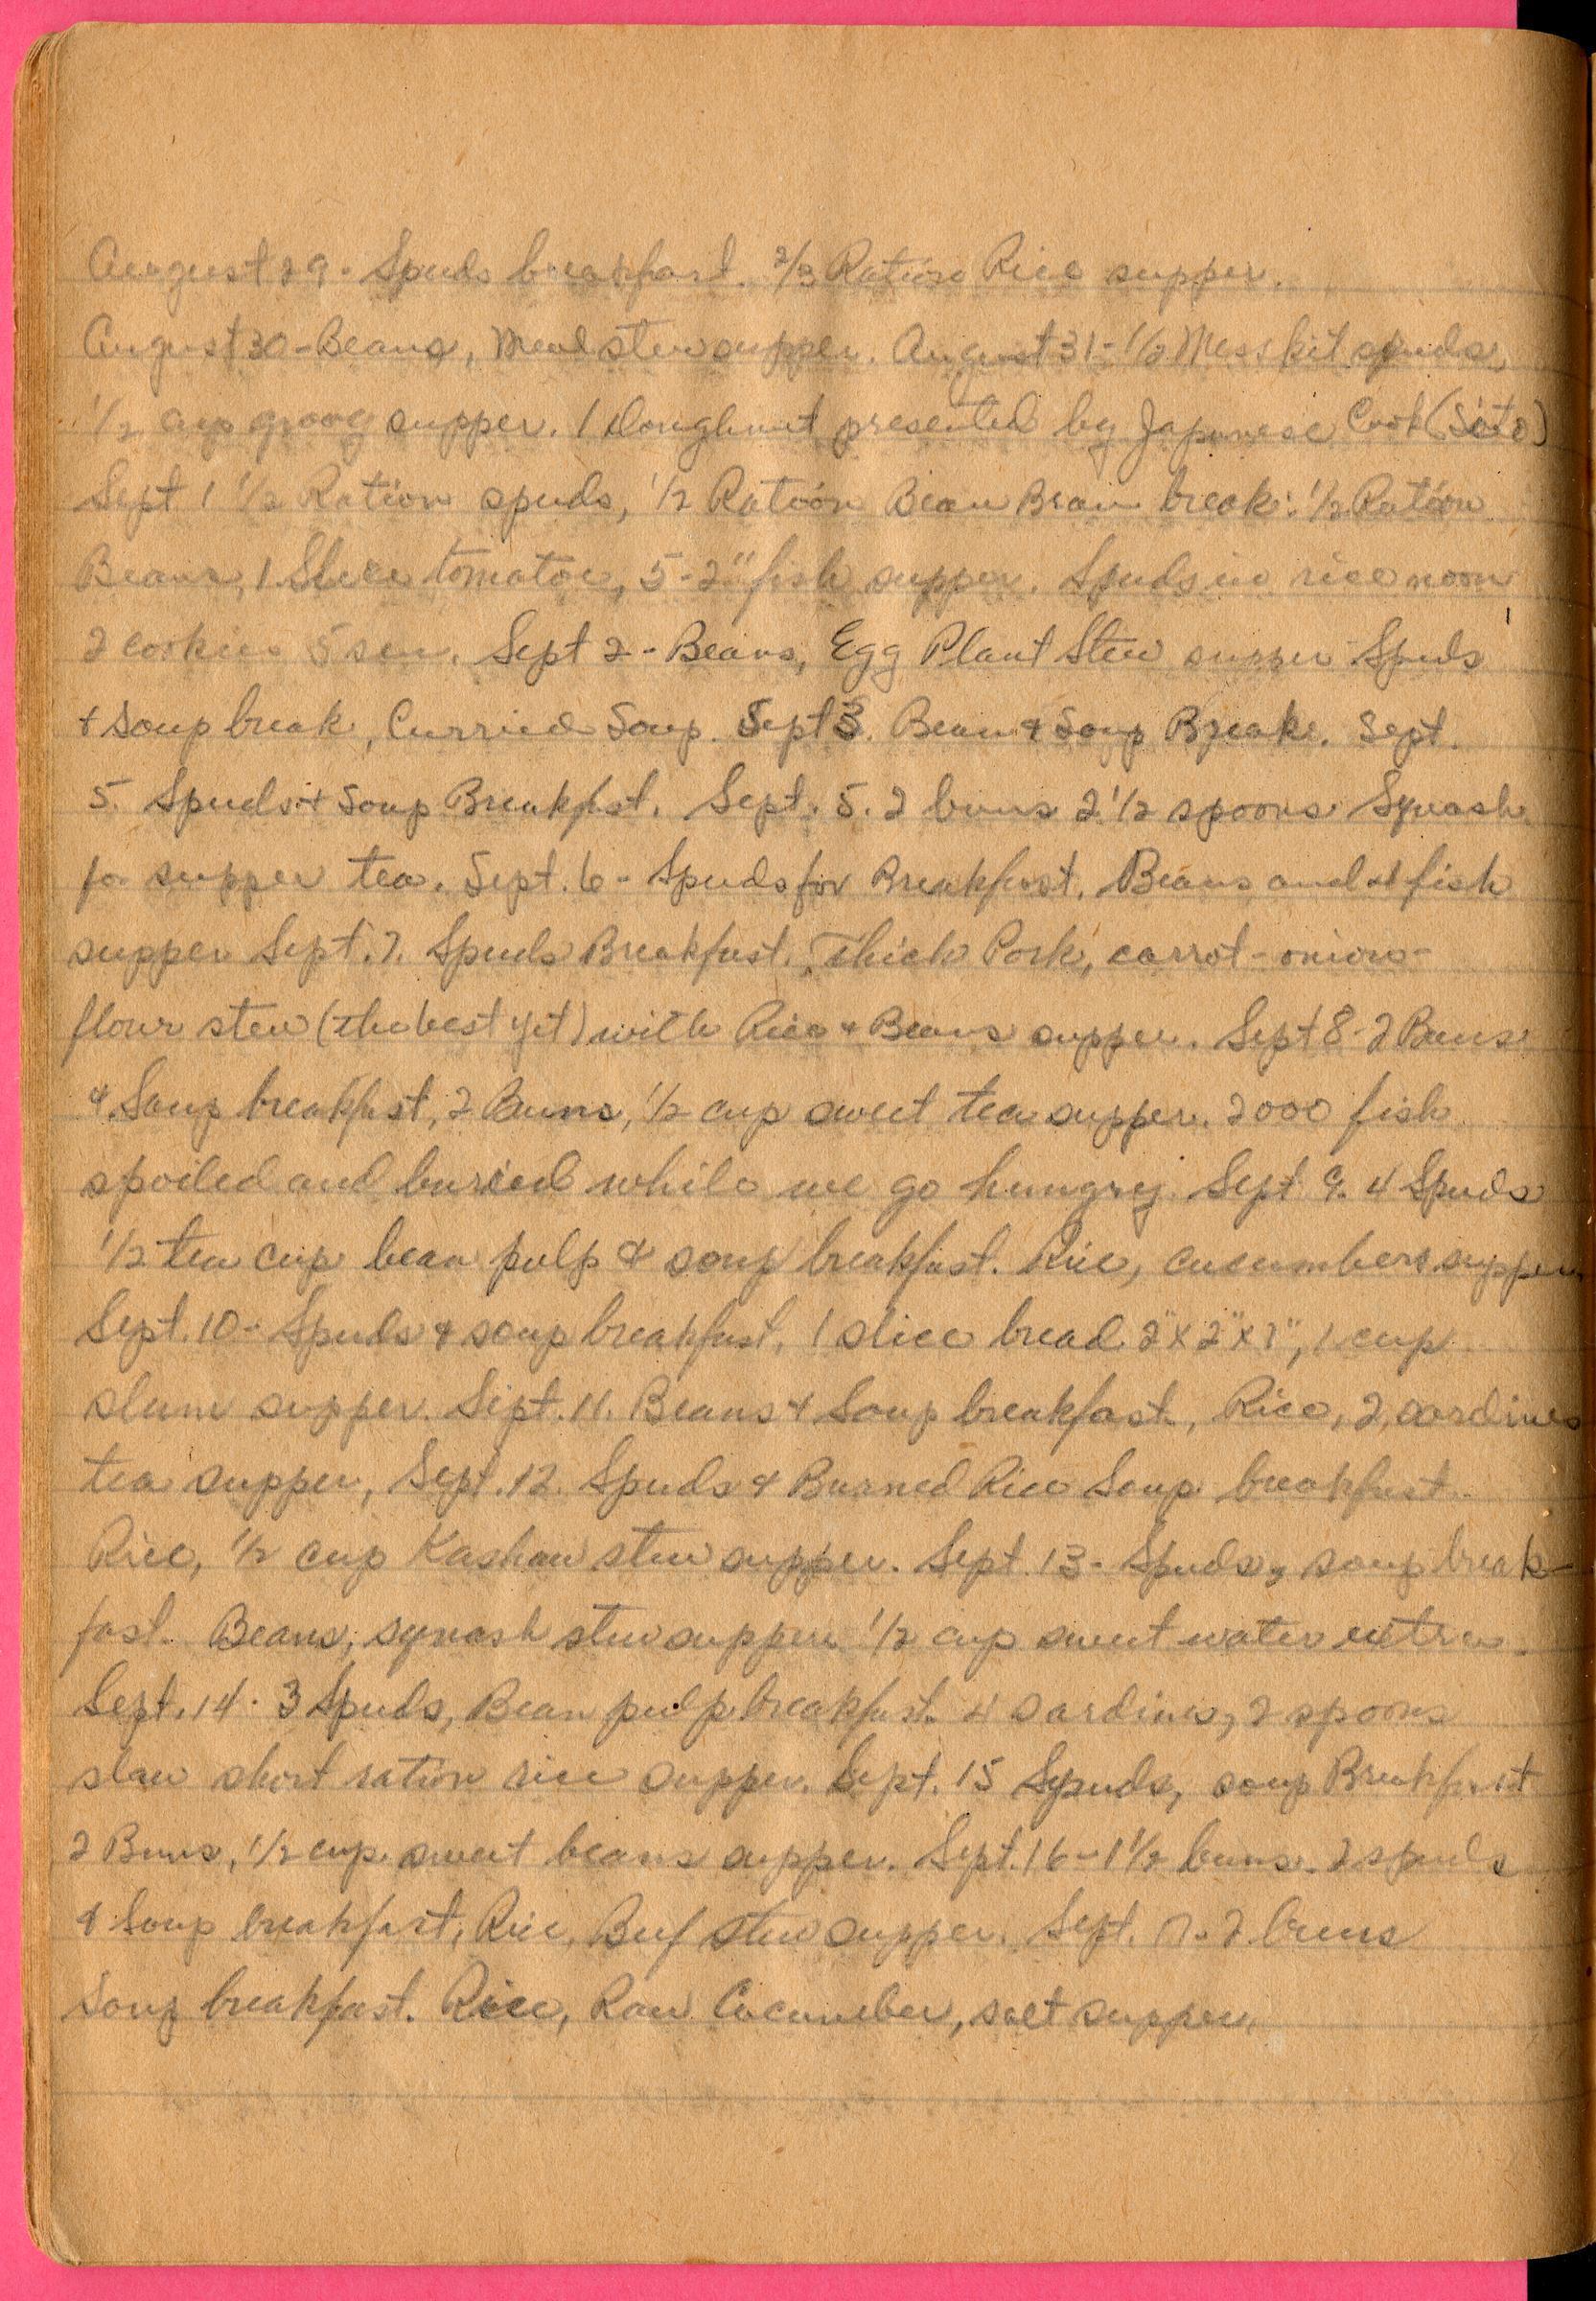 August 29. Spuds breakfast. 2/3 Ration Rice supper.
August 30 - Beans, Meal stew supper. August 31 - 1/2 Mess kit spuds,
1/2 cup groog supper. 1 Doughnut presented by Japanese Cook (Sito)
Sept 1 1/2 Ration spuds, 1/2 Ration Bean Bran break: 1/2 Ration
Beans, 1 Slice tomatoe, 5 - 2" fish supper. Spuds in rice noon
2 cookies 5 sen. Sept 2 - Beans, Egg Plant Stew supper Spuds
& Soup break, Curried Soup. Sept 3. Bean & Soup Breake. Sept.
5. Spuds & Soup Breakfast. Sept. 5. 2 buns 2 1/2 spoons Squash
for supper tea. Sept. 6 - Spuds for Breakfast. Beans and 4 fish
supper Sept. 7. Spuds Breakfast. Thick Pork, carrot - onion -
flour stew (the best yet) with Rice & Beans supper. Sept 8 - 2 Buns
& Soup breakfast, 2 Buns, 1/2 cup sweet tea supper. 2000 fish
spoiled and buried while we go hungry. Sept 9. 4 Spuds
1/2 tea cup bean pulp & soup breakfast. Rice, cucumbers supper
Sept. 10 - Spuds & soup breakfast. 1 slice bread 2" x 2" x 1", 1 cup
slum supper. Sept. 11. Beans & Soup breakfast, Rice, 2, sardines
tea supper, Sept. 12. Spuds & Burned Rice Soup breakfast
Rice, 1/2 cup Kashaw stew supper. Sept. 13 - Spuds, soup break-
fast. Beans, squash stew supper 1/2 cup sweet water extra.
Sept. 14. 3 Spuds, Bean pulp breakfast. 4 sardines, 2 spoons
slaw short ration rice supper. Sept. 15 Spuds, soup Breakfast
2 Buns, 1/2 cup sweet beans supper. Sept. 16 - 1 1/2 buns. 2 spuds
& Soup breakfast, Rice, Beef stew supper. Sept. 17. 2 buns
Soup breakfast. Rice, Raw Cucumber, salt supper.